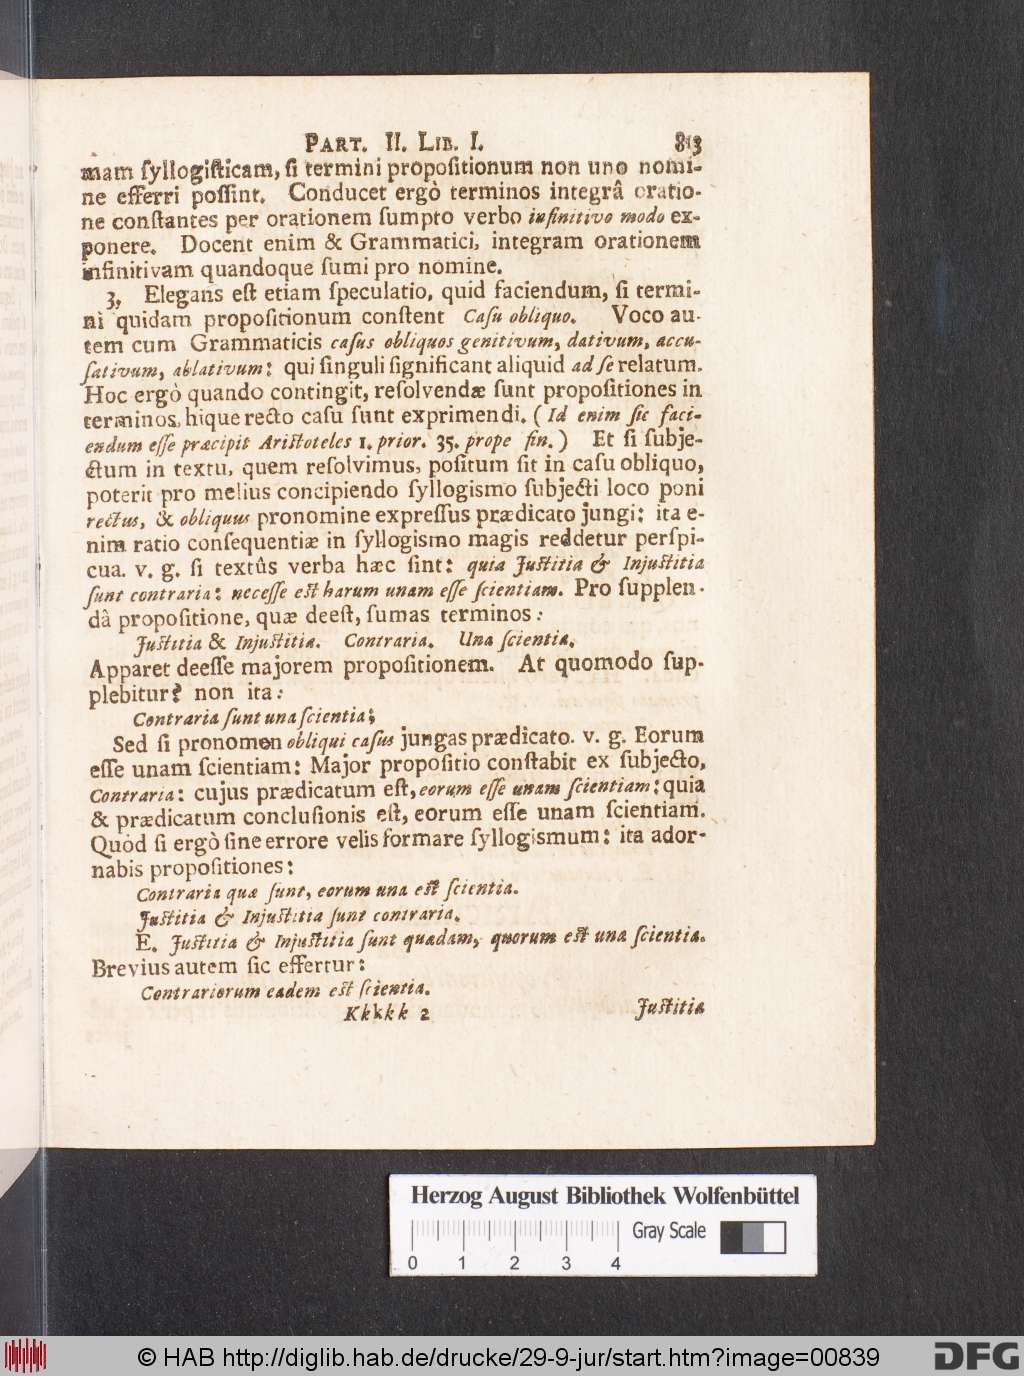 PART. II. LIB. I. 813
mam ſyllogiſticam, ſi termini propoſitionum non uno nomi-
ne efferri poſſint. Conducet ergò terminos integrâ oratio-
ne conſtantes per orationem ſumpto verbo infinitivo modo ex-
ponere. Docent enim & Grammatici, integram orationem
infinitivam quandoque ſumi pro nomine.
3, Elegans eſt etiam ſpeculatio, quid faciendum, ſi termi-
ni quidam propoſitionum conſtent Caſu obliquo. Voco au-
tem cum Grammaticis caſus obliquos genitivum, dativum, accu-
ſativum, ablativum: qui ſinguli ſignificant aliquid ad ſe relatum.
Hoc ergò quando contingit, reſolvendæ ſunt propoſitiones in
terminos, hique recto caſu ſunt exprimendi. (Id enim ſic faci-
endum eſſe præcipit Ariſtoteles 1. prior. 35. prope fin.) Et ſi ſubje-
ctum in textu, quem reſolvimus, poſitum ſit in caſu obliquo,
poterit pro melius concipiendo ſyllogismo ſubjecti loco poni
rectus, & obliquus pronomine expreſſus prædicato jungi: ita e-
nim ratio conſequentiæ in ſyllogismo magis reddetur perſpi-
cua. v. g. ſi textûs verba hæc ſint: quia Juſtitia & Injuſtitia
ſunt contraria: neceſſe eſt harum unam eſſe ſcientiam. Pro ſupplen-
dâ propoſitione, quæ deeſt, ſumas terminos:
Juſtitia & Injuſtitia. Contraria. Una ſcientia.
Apparet deeſſe majorem propoſitionem. At quomodo ſup-
plebitur? non ita:
Contraria ſunt una ſcientia;
Sed ſi pronomen obliqui caſus jungas prædicato. v. g. Eorum
eſſe unam ſcientiam: Major propoſitio conſtabit ex ſubjecto,
Contraria: cujus prædicatum eſt, eorum eſſe unam ſcientiam: quia
& prædicatum concluſionis eſt, eorum eſſe unam ſcientiam.
Quòd ſi ergò ſine errore velis formare ſyllogismum: ita ador-
nabis propoſitiones:
Contraria quæ ſunt, eorum una eſt ſcientia.
Juſtitia & Injuſtitia ſunt contraria.
E. Juſtitia & Injuſtitia ſunt quædam, quorum eſt una ſcientia.
Brevius autem ſic effertur:
Contrariorum eadem eſt ſcientia.
Kkkkk 2 Juſtitia
Herzog August Bibliothek Wolfenbüttel
Gray Scale
0 1 2 3 4
© HAB http://diglib.hab.de/drucke/29-9-jur/start.htm?image=00839
DFG